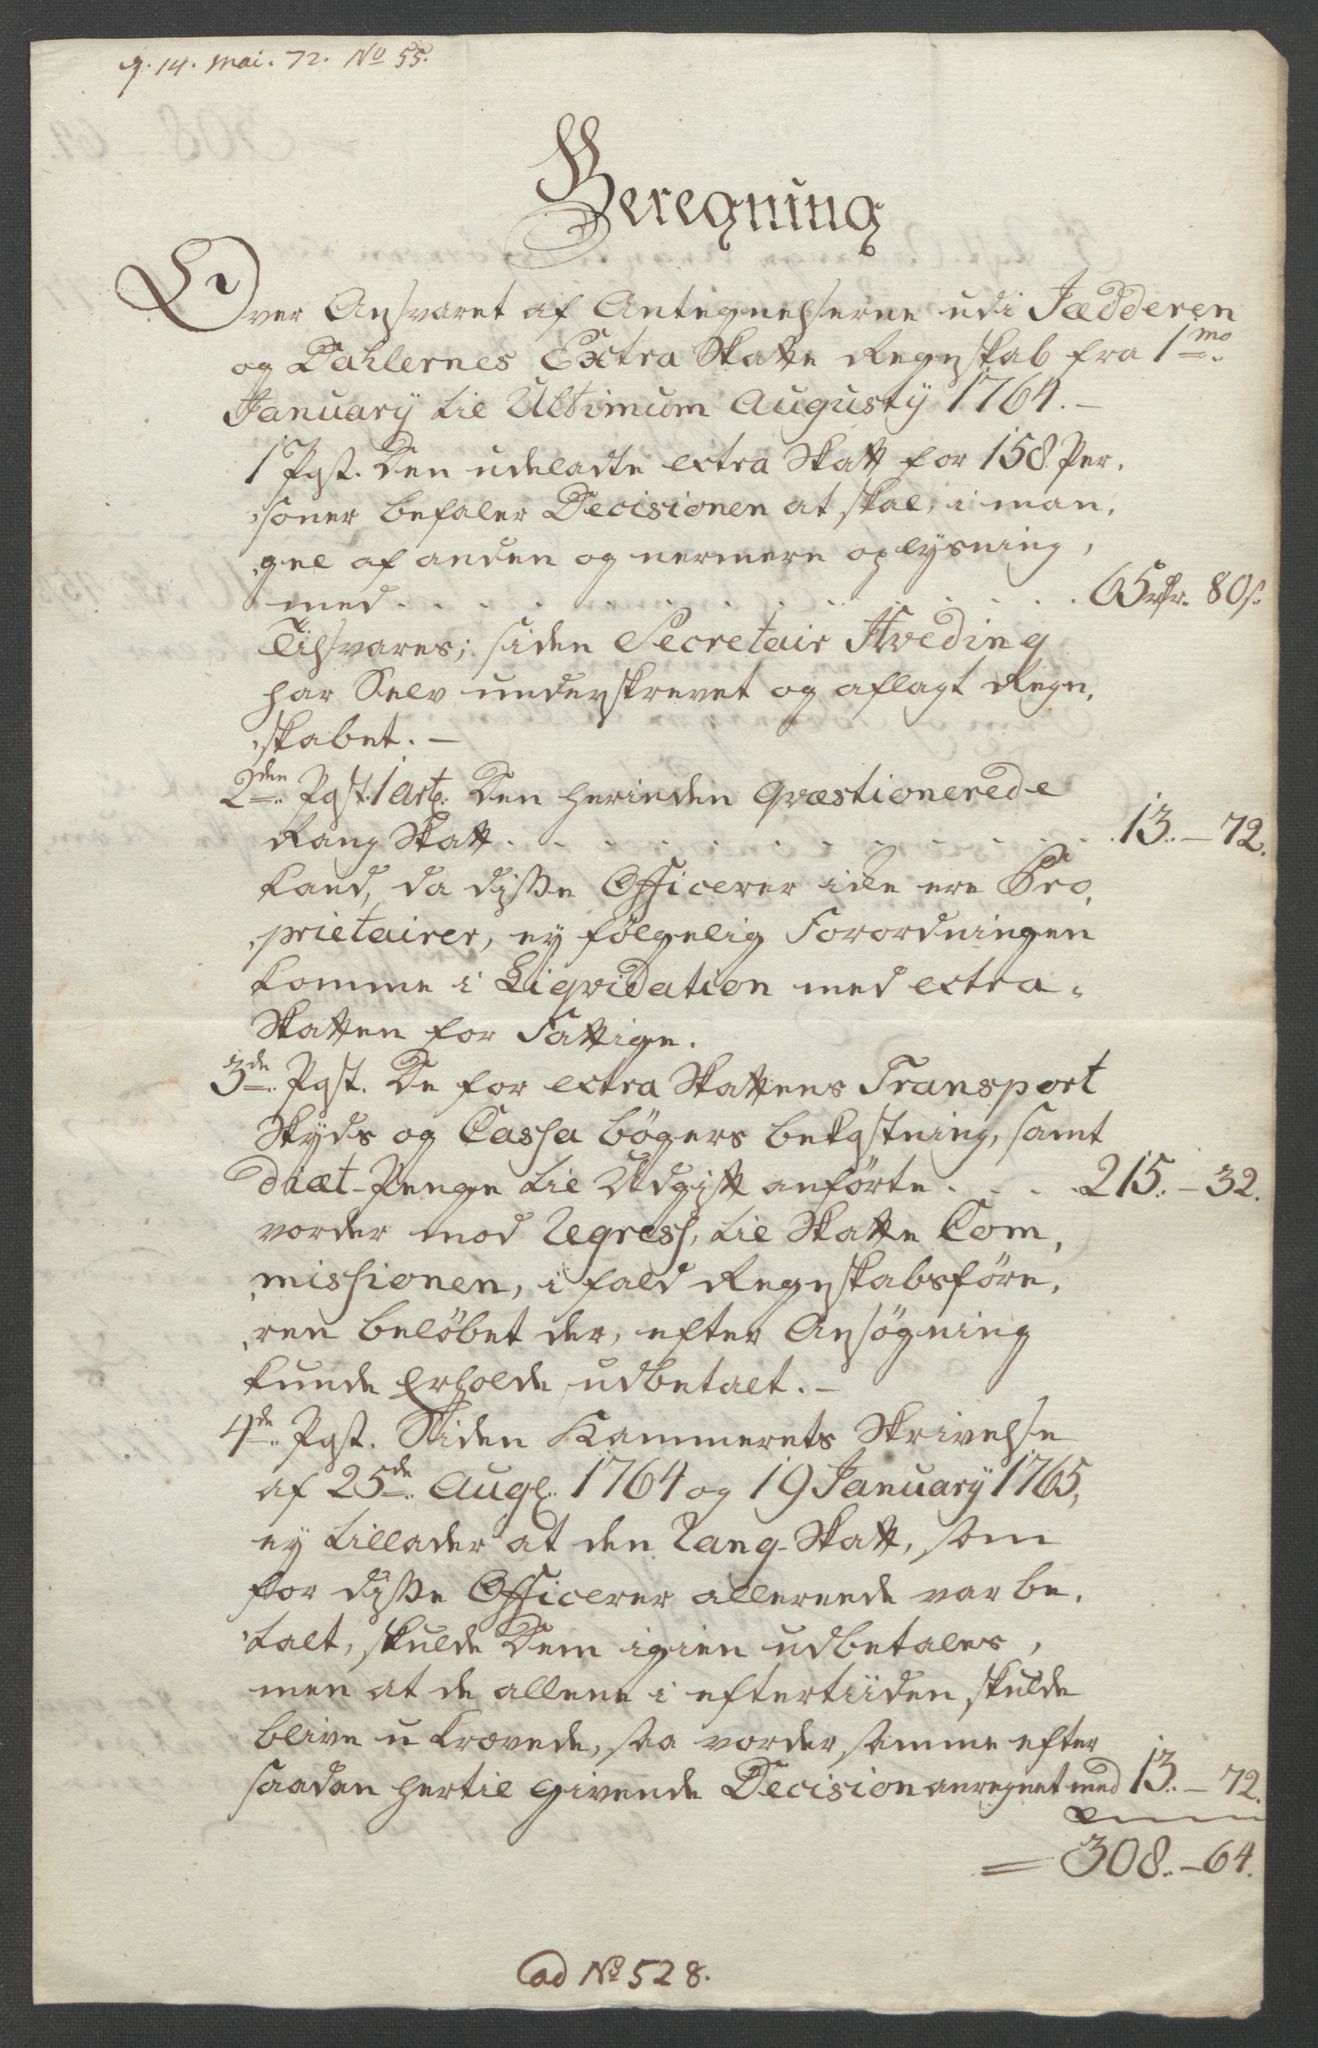 q. 14. Mai. 72. No 55.
Beregning
Over Ansvaret af Antegnelserne udi Jædderen
og Dahlernes Extra Skatte Regnskab fra 1mo
January til Ultimum Augusty 1764.
1 Post. Den udeladte extra Skatt for 158 Per,
,soner befaler Decisionen at skal, i man,
,gel af anden og nermere oplysning,
med . . . 65 rdr. 80 s.
Tilsvares; siden Secretair Hveding
har Selv underskrevet og aflagt Regn,
,skabet.
2den Post. 1 Art. Den herinden Qvæstionerede
Rang Skatt . . . 13. - 72.
kand, da disse Officerer icke ere Pro,
,prietairer, ey følgelig Forordningen
komme i Liqvidation med extra-
Skatten for Fattige.
3de Post. De for extra Skattens Transport
Skyds og Cassa bøgers bekostning, samt
diæt-Penge til Udgift anførte . . . 215. - 32.
vorder mod Regress, til Skatte Com,
,missionen, i fald Regnskabsføre,
,ren beløbet der, efter Ansøgning
kunde Erholde udbetalt.
4de Post. Siden Kammerets Skrivelse
af 25de Aug. 1764 og 19 January 1765,
ey tillader at den Rang-Skatt, som
for disse Officerer allereede var be,
,talt, skulde Dem igien udbetales,
men at de allene i eftertiiden skulde
blive u krævede, saa vorder samme efter
saadan hertil givende Decision anregnet med 13. - 72.
= 308. - 64.
ad No 528.